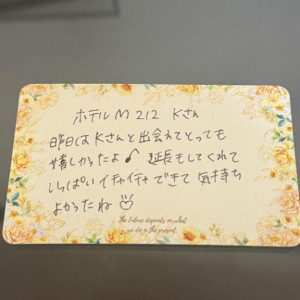 ホテルM 212 Kさん
昨日はKさんと出会えてとっても
嬉しかったよ♪ 延長もしてくれて
いっぱいイチャイチャできて気持ち
よかったね
The future depends on what
we do in the present.